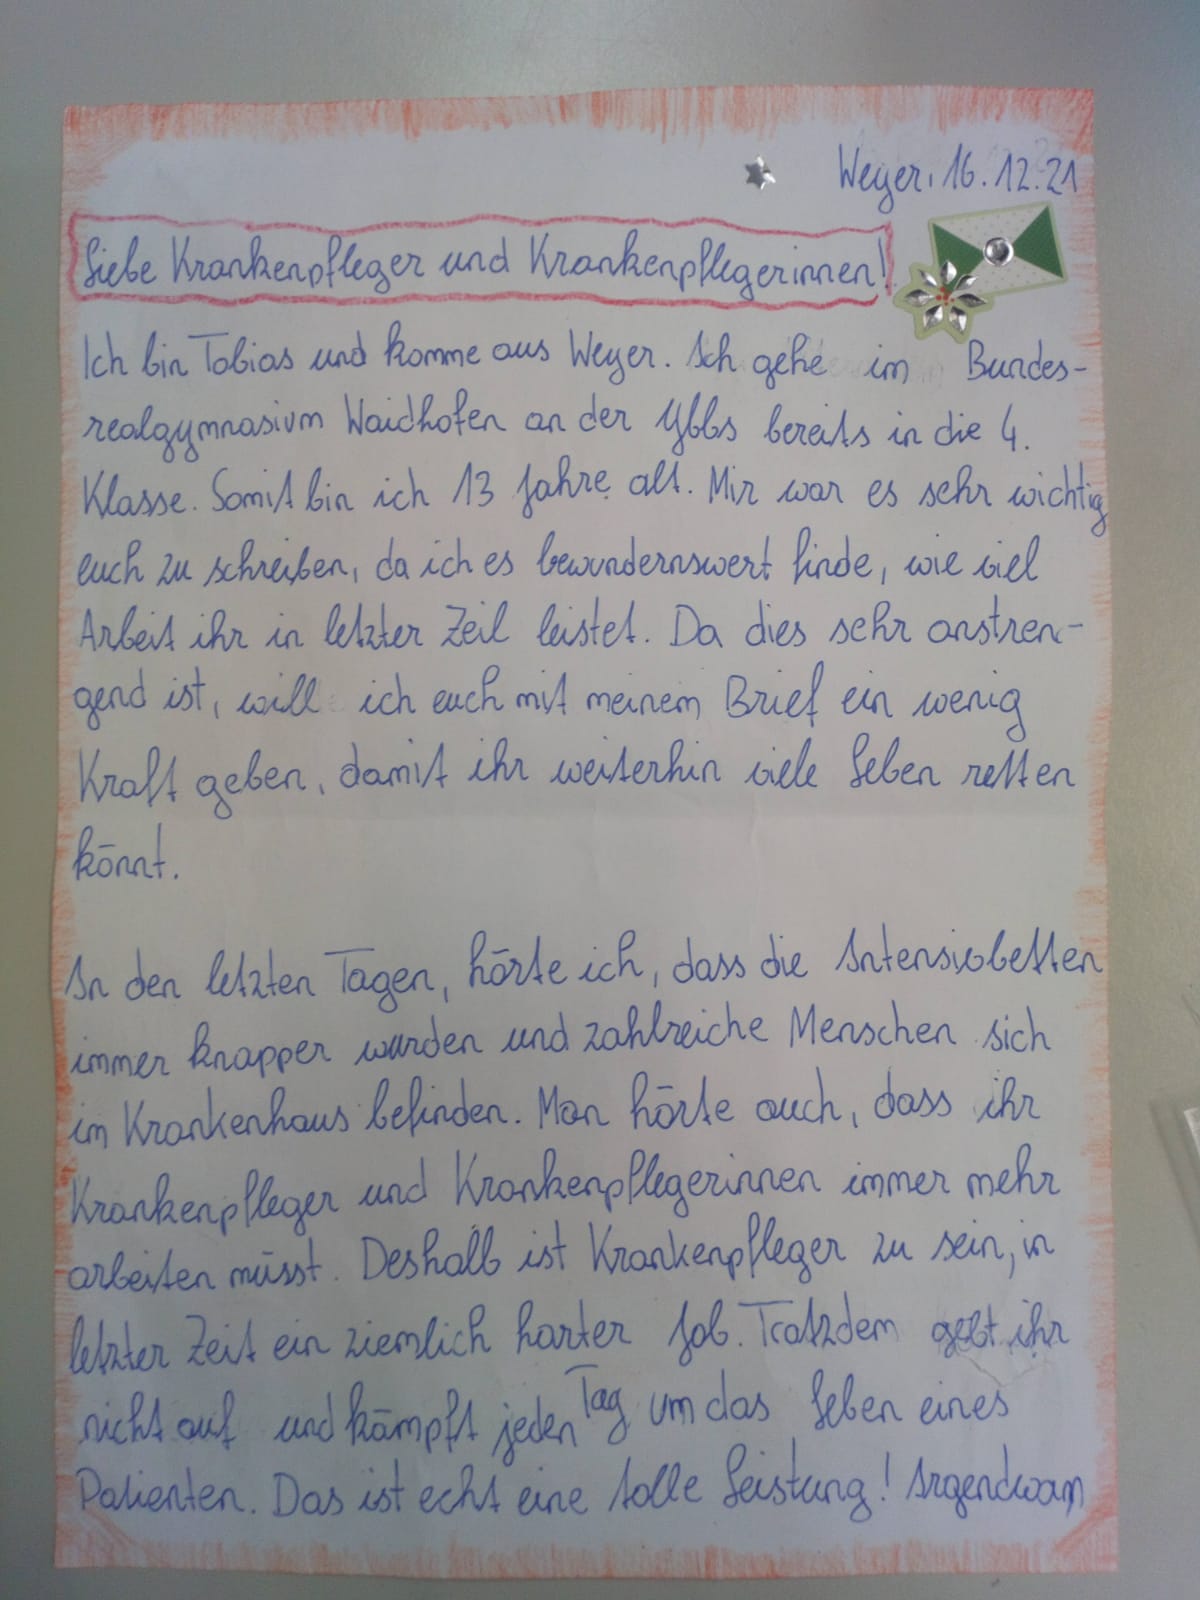 Weyer, 16.12.21
Liebe Krankenpfleger und Krankenpflegerinnen!
Ich bin Tobias und komme aus Weyer. Ich gehe im Bundes-
realgymnasium Waidhofen an der Ybbs bereits in die 4.
Klasse. Somit bin ich 13 Jahre alt. Mir war es sehr wichtig
euch zu schreiben, da ich es bewundernswert finde, wie viel
Arbeit ihr in letzter Zeit leistet. Da dies sehr anstren-
gend ist, will ich euch mit meinem Brief ein wenig
Kraft geben, damit ihr weiterhin viele Leben retten
könnt.
In den letzten Tagen, hörte ich, dass die Intensivbetten
immer knapper wurden und zahlreiche Menschen sich
im Krankenhaus befinden. Man hörte auch, dass ihr
Krankenpfleger und Krankenpflegerinnen immer mehr
arbeiten müsst. Deshalb ist Krankenpfleger zu sein, in
letzter Zeit ein ziemlich harter Job. Trotzdem gebt ihr
nicht auf und kämpft jeden Tag um das Leben eines
Patienten. Das ist echt eine tolle Leistung! Irgendwann